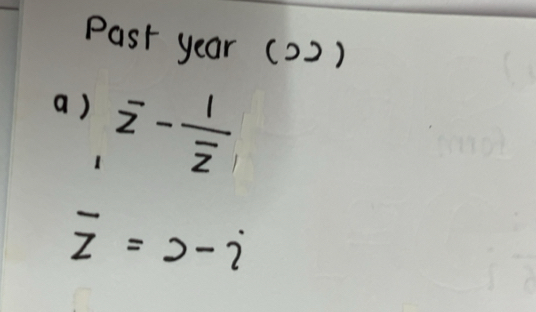 Past year (22)
a) z̄ - 1/z̄
z̄ = 2 - i